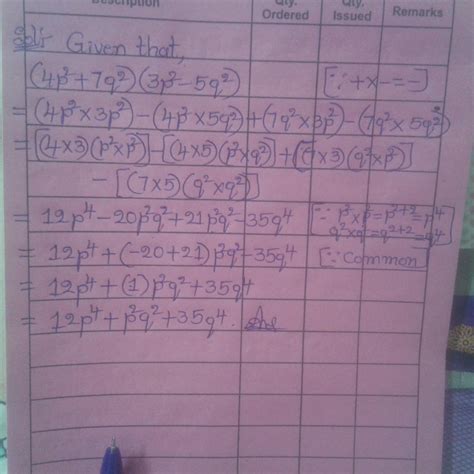 Description Qty. Ordered Qty. Issued Remarks
Solⁿ: Given that,
(4p²+7q²)(3p²-5q²) [∵ +x-=-]
= (4p²×3p²)-(4p²×5q²)+(7q²×3p²)-(7q²×5q²)
= [(4×3)(p²×p²)]-[(4×5)(p²×q²)]+[(7×3)(q²×p²)]
-[(7×5)(q²×q²)]
= 12p⁴-20p²q²+21p²q²-35q⁴ [∵ p²×p²=p²⁺²=p⁴
q²×q²=q²⁺²=q⁴]
= 12p⁴+(-20+21)p²q²-35q⁴ [∵ Common]
= 12p⁴+(1)p²q²+35q⁴
= 12p⁴+p²q²+35q⁴. Ans